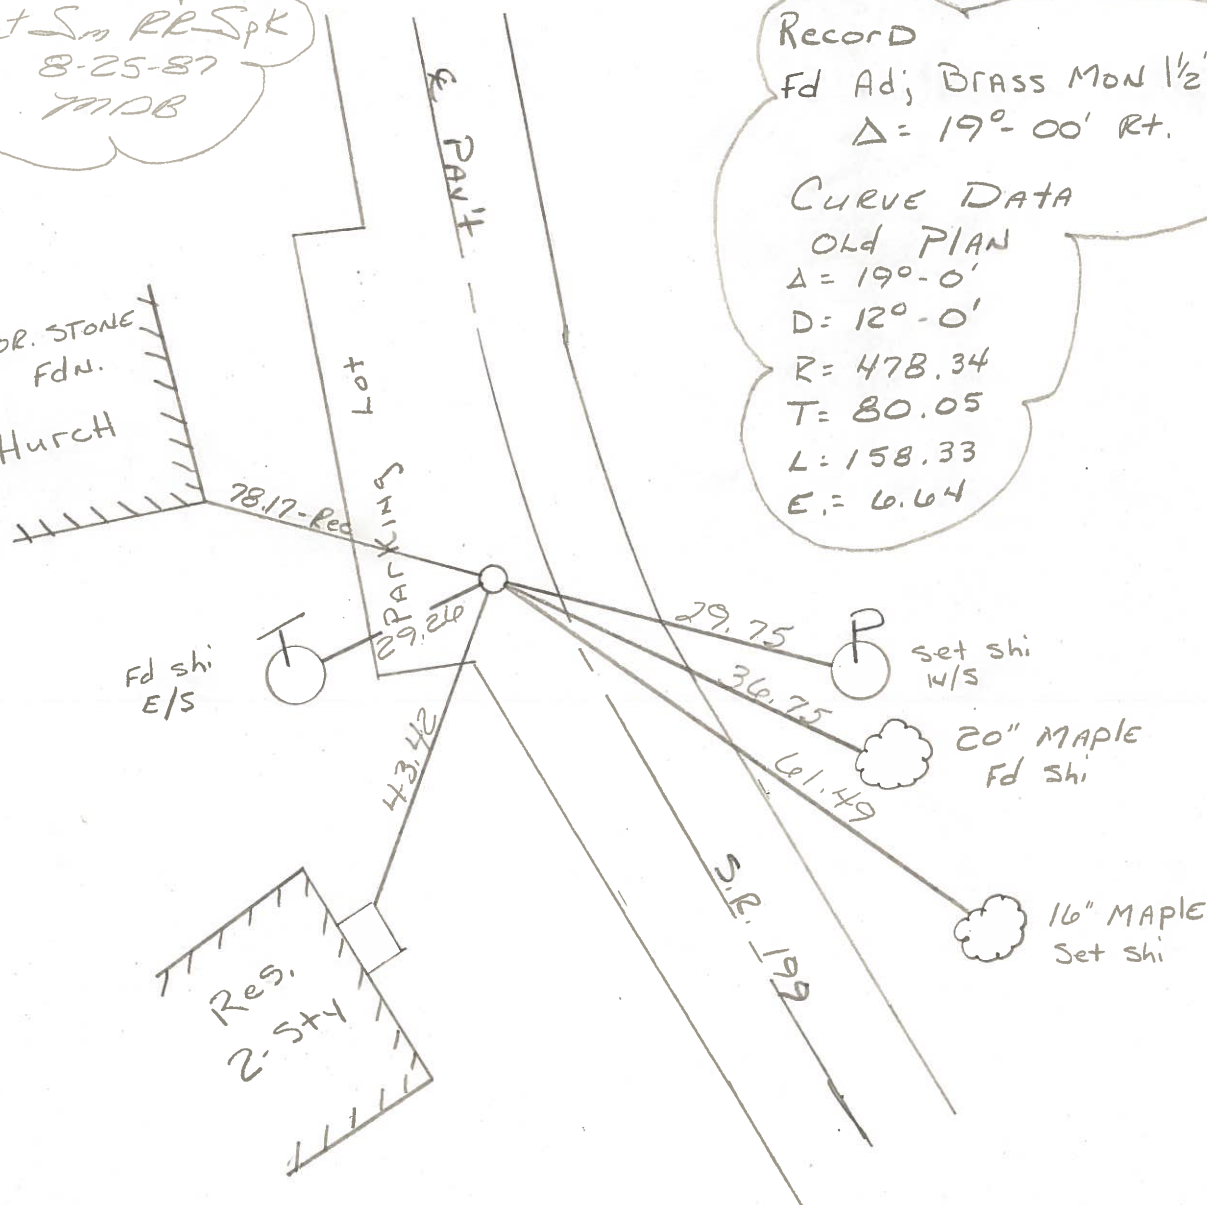 Sm RR Spk
8-25-87
MDB
Record
Fd Adj Brass Mon 1½"
Δ = 19°- 00' Rt.
Curve Data
Old Plan
Δ = 19°-0'
D = 12°-0'
R = 478.34
T = 80.05
L = 158.33
E. = 6.64
℄ Pav't
OR. STONE
Fdn.
Hurch
Parking Lot
78.17-Rec
29.26
43.42
29.75
36.75
61.49
Fd shi
E/S
Set shi
W/S
20" Maple
Fd Shi
16" Maple
Set Shi
S.R. 199
Res.
2-Sty